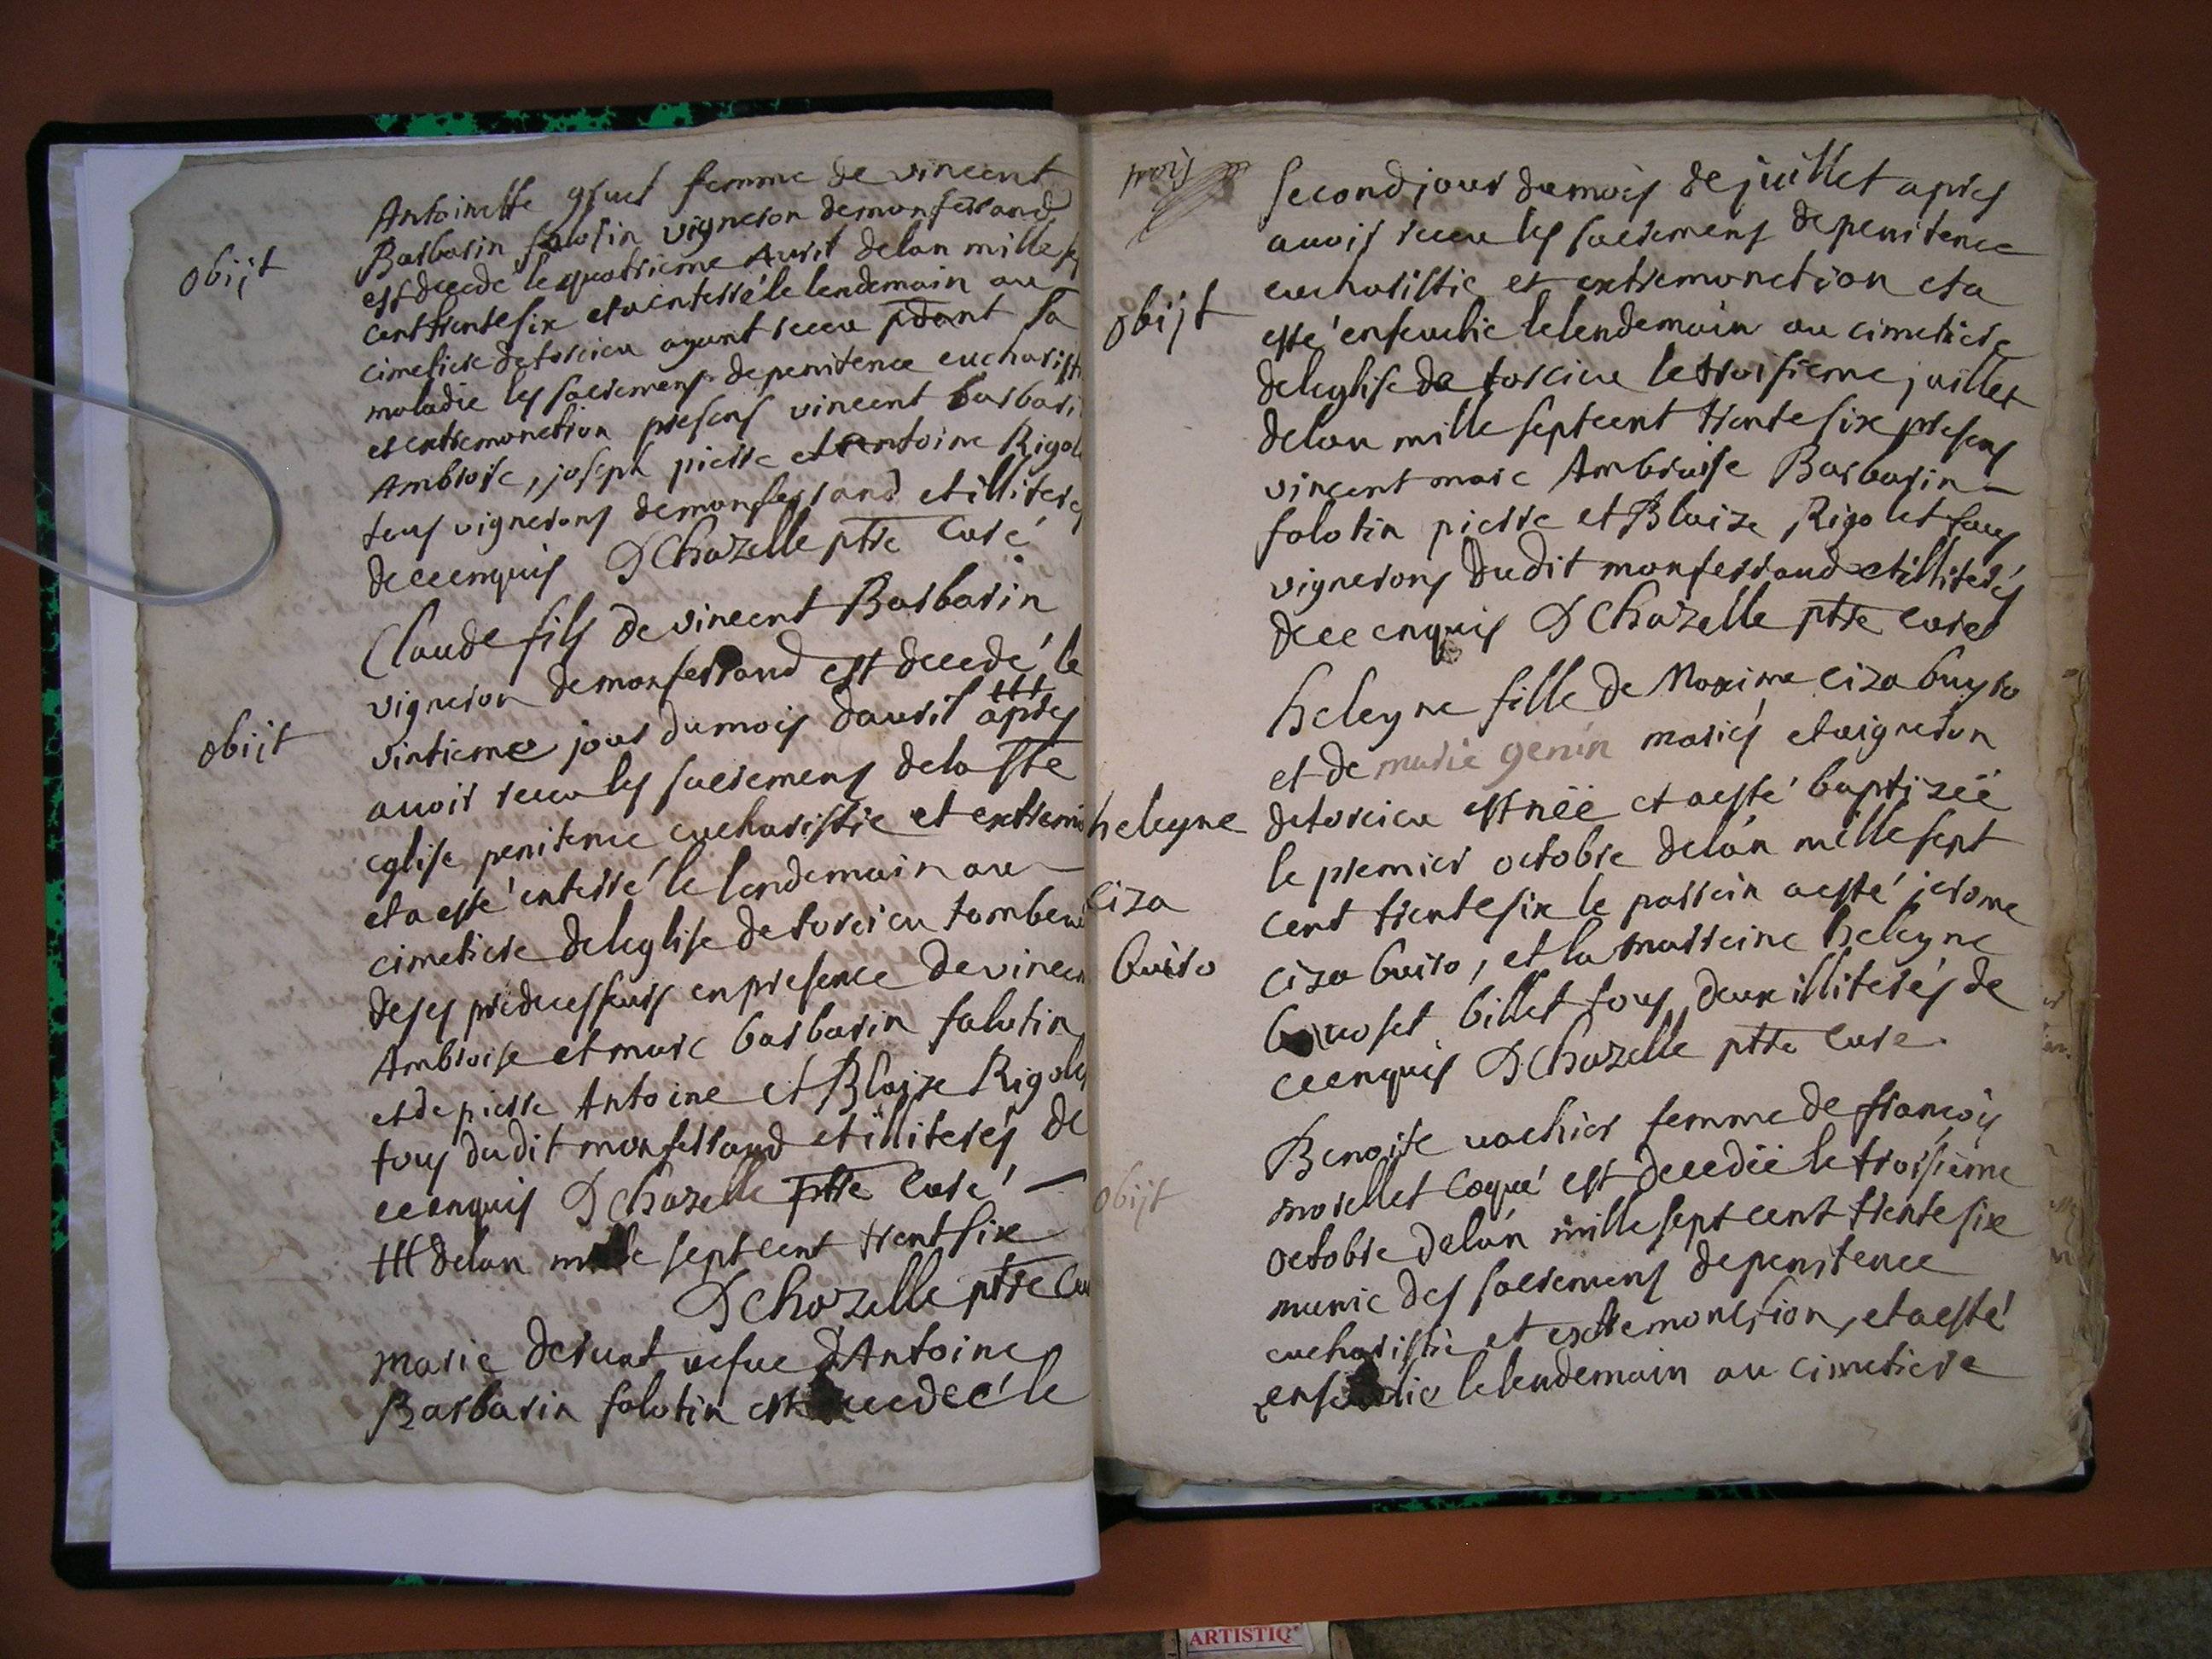 Antoinette gruet femme de vincent
Barbarin falotin vigneron demonferrand
obijt
est decede le quatrieme Avril delan mille
cent trente six eta enterré le lendemain au
cimetiere de torcieu ayant receu pdant sa
maladie les sacremens depenitence eucharisti
et extremonction presens vincent barbari
Ambroise, joseph pierre et Antoine Rigol
tous vignerons demonferrand et illiteré
deceenquis D Chazelle ptre Curé
Claude fils de vincent Barbarin
vigneron demonferrand est decedé le
obiit
vintieme jour dumois davril ttt apres
avoir receu les sacremens dela Ste
eglise penitence eucharistie et extrem
eta esté enterré le lendemain au
cimetiere deleglise de torcieu tombeau
deses predecesseurs enpresence de vincen
Ambroise et marc barbarin falotin
et de pierre Antoine et Blaize Rigole
tous dudit monferrand et illiterés de
ceenquis D Chazelle ptre Curé
ttt delan mille sept cent trent six
D Chazelle ptre Cu
marie derunt vefue d'Antoine
Barbarin falotin est decedeé le
second jour dumois de juillet apres
avoir receu les sacremens depenitence
obijt
eucharistie et extremonction eta
esté ensevelie lelendemain au cimetiere
deleglise de torcieu letroisieme juillet
delan mille septcent trente six presens
vincent marc Ambroise Barbarin
falotin pierre et Blaize Rigolet tous
vignerons dudit monferrand et illiterés
deceenquis D Chazelle ptre curé
heleyne fille de Maxime ciza buyro
et de marie genin mariés et vigneron
heleyne
detorcieu est neë et a esté baptizeë
le premier octobre delan mille sept
ciza
cent trente six le parrain a esté jerome
buiro
ciza buiro, et la marreine heleyne
billet tous deux illiterés de
ceenquis D Chazelle ptre Cure.
Benoite vachier femme de françois
obijt
morellet coqué est decedeë le troisieme
octobre delan mille sept cent trente six
munie des sacremens depenitence
eucharistie et extremonction, et a esté
ensevelie lelendemain au cimetiere
ARTISTIQ